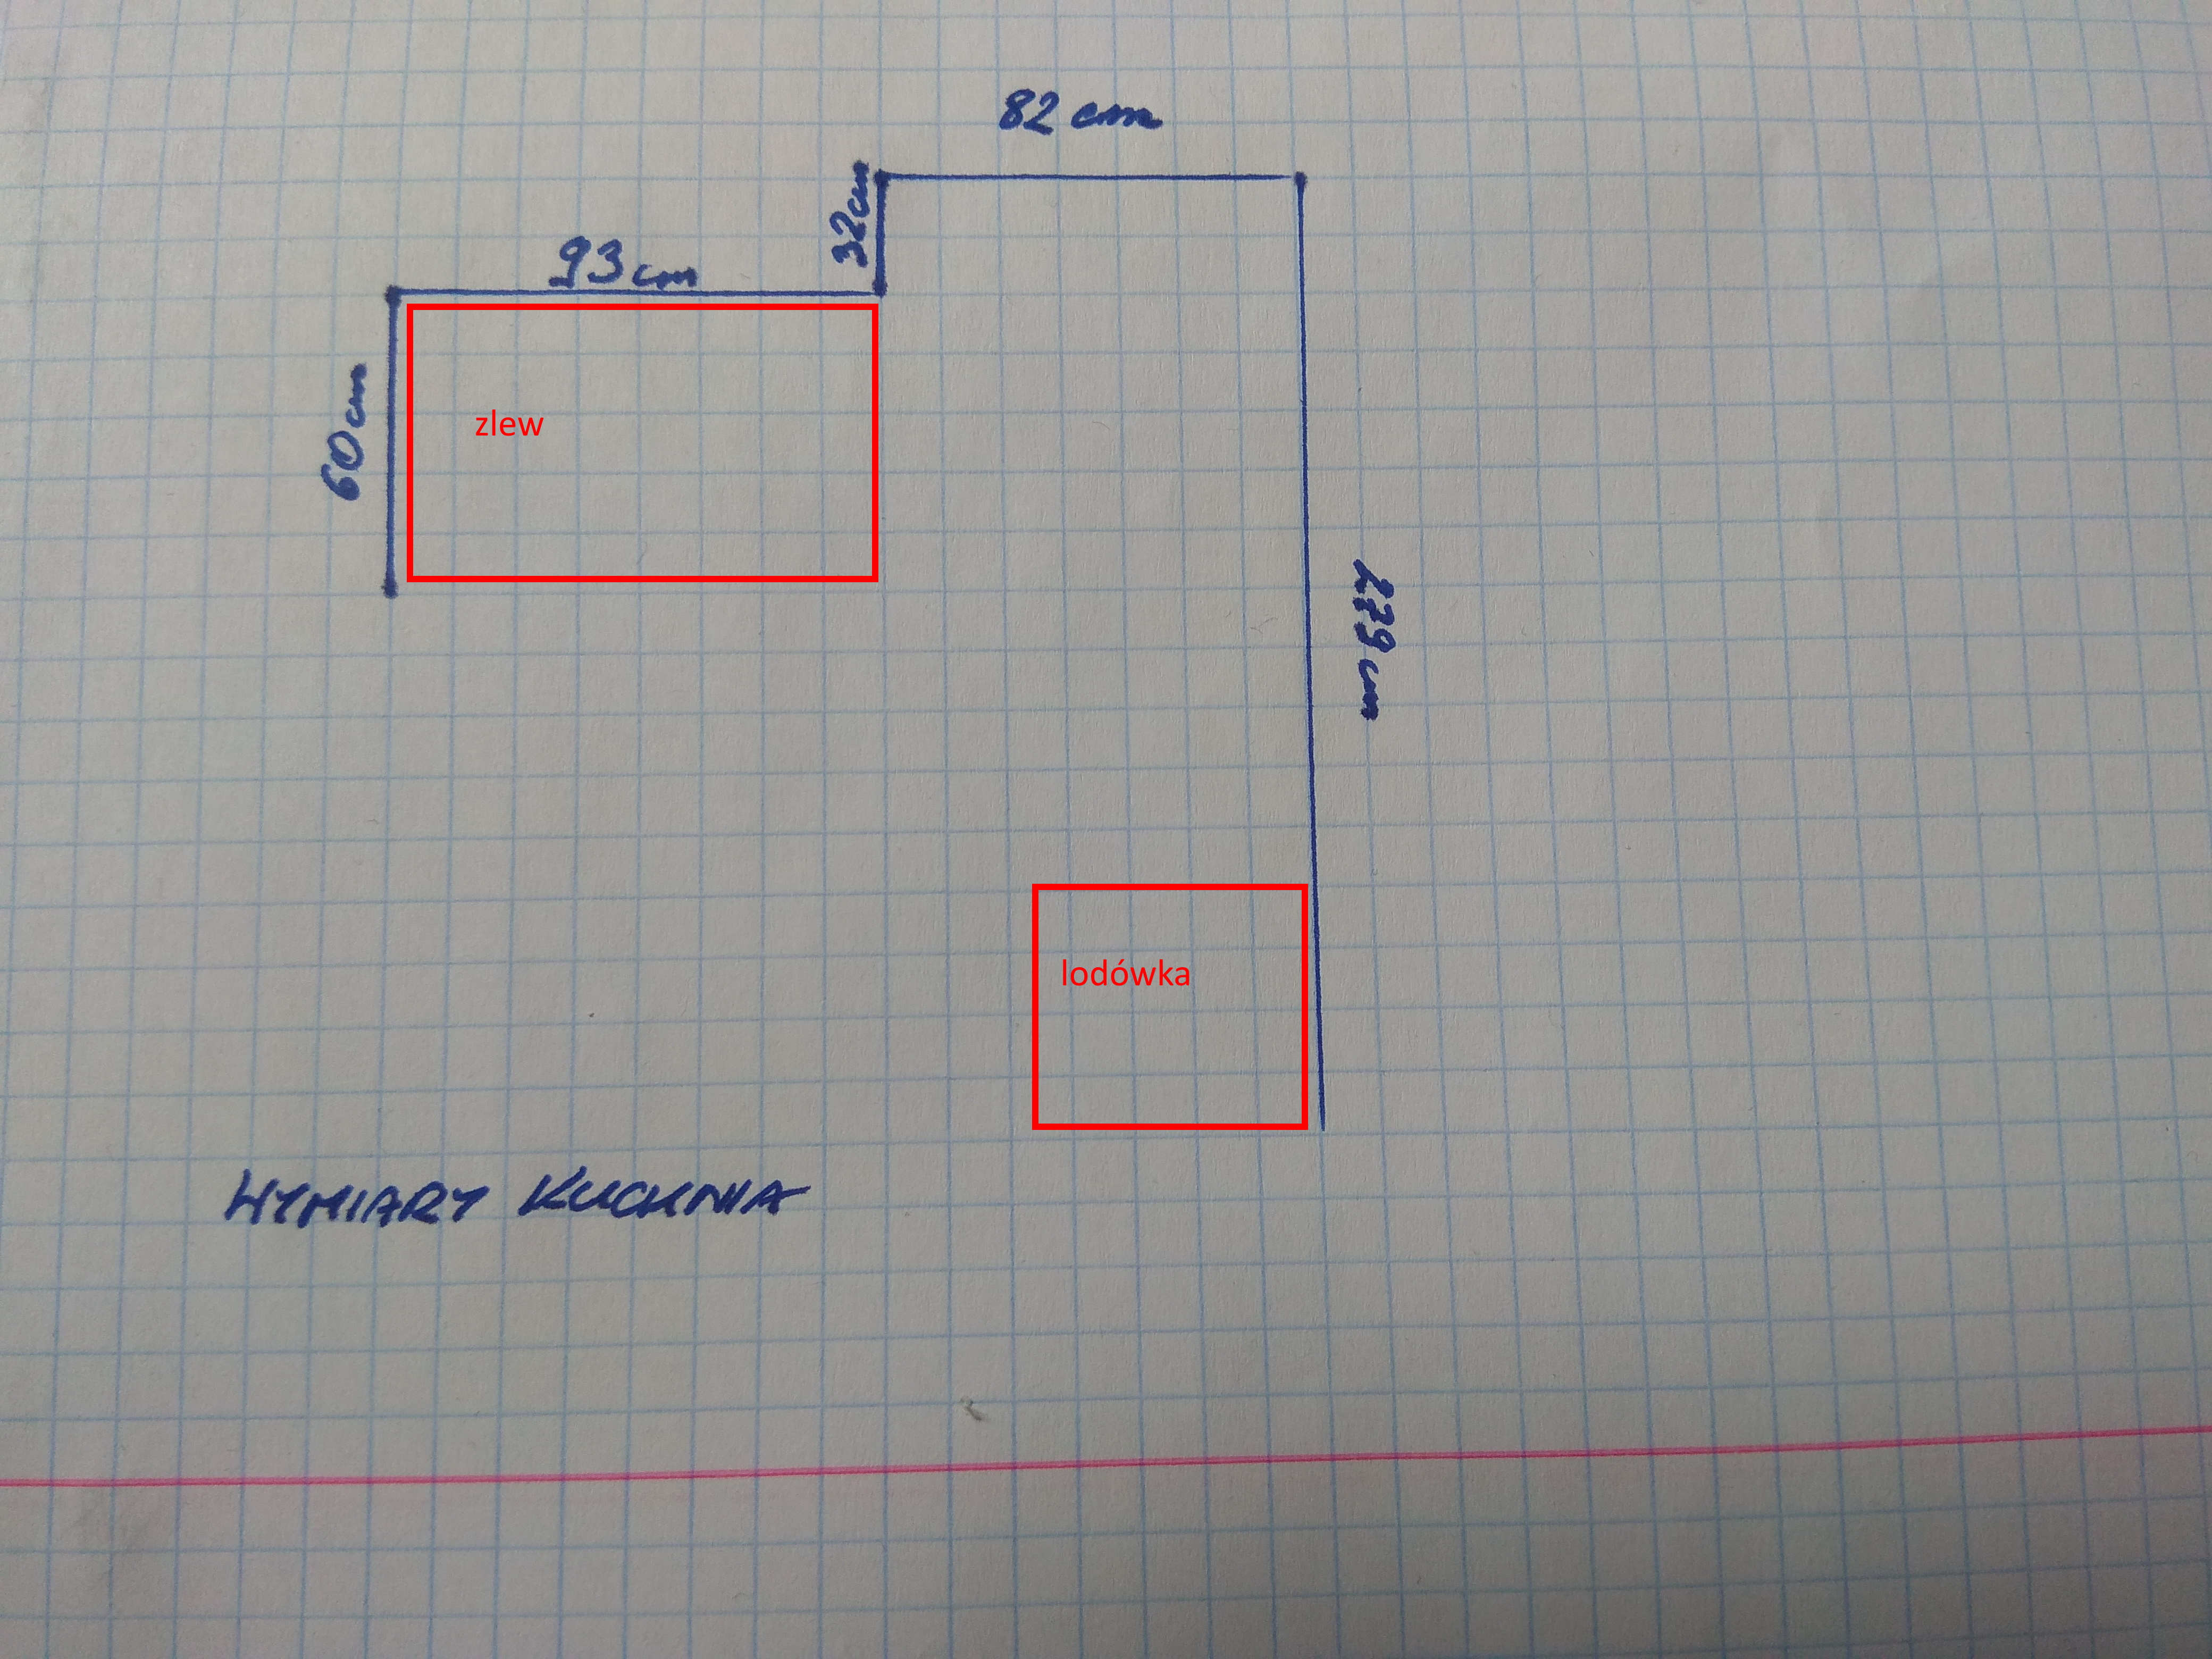 82 cm
32cm
93 cm
60cm
zlew
279 cm
lodówka
WYMIARY KUCHNIA